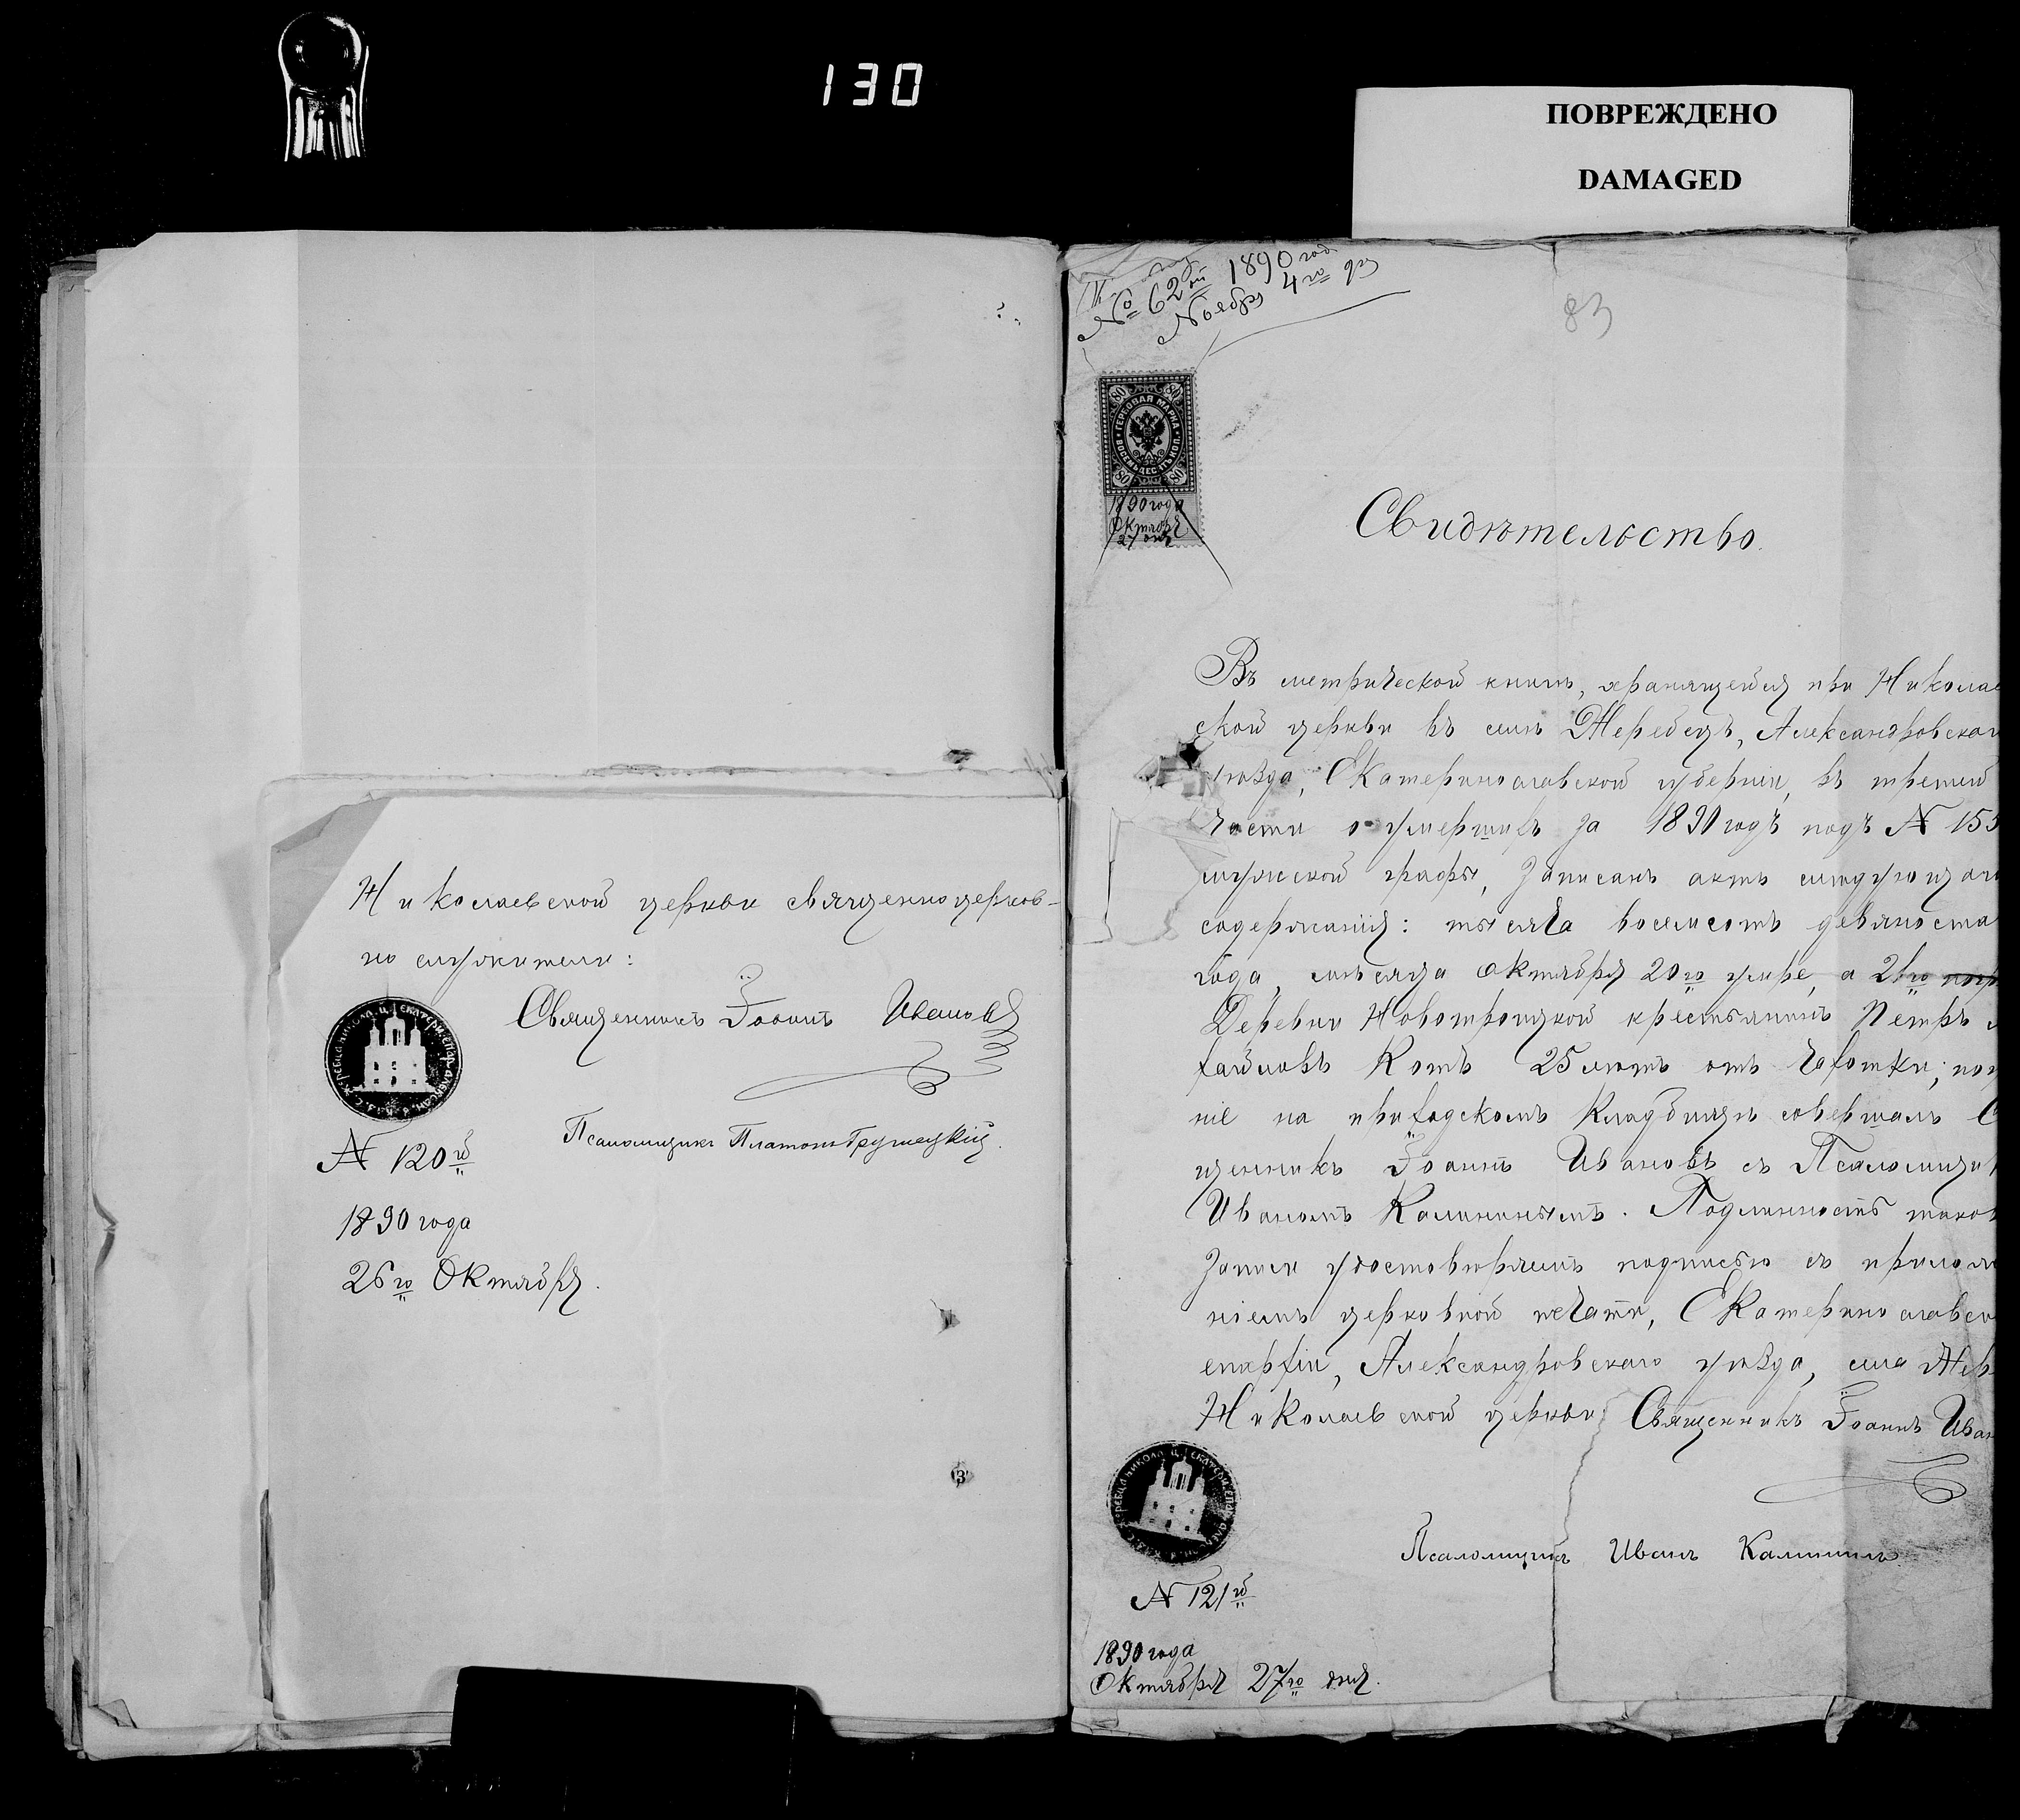 130
ПОВРЕЖДЕНО
DAMAGED
Николаевской церкви священноцерков-
но служители:
Священникъ Іоаннъ Ивановъ
Псаломщикъ Платонъ Грушецкій.
№ 120й
1890 года
26го Октября.
№ 62ой 1890 год
Ноября 4го дня
83
80 80
ГЕРБОВАЯ МАРКА
ВОСЕМЬДЕСЯТЪ КОП.
80 80
1890 года
Октября
27 дня
Свидѣтельство.
Въ метрической книгѣ, хранящейся при Николае
ской церкви въ селѣ Жеребецъ, Александровскаг
уѣзда, Екатеринославской губерніи, въ третьей
части о умершихъ за 1890 годъ подъ № 155
мужеской графы, записанъ актъ слѣдующаго
содержанія: тысяча восемсотъ девяноста
года, мѣсяца Октября 20го умре, а 21го погр
Деревни Новотроицкой крестьянинъ Петръ
хайловъ Котъ 25 лѣтъ отъ чахотки; пог
ніе на приходскомъ кладбищѣ совершалъ С
щенникъ Іоаннъ Ивановъ съ Псаломщик
Иваномъ Калининымъ. Подлинность таков
записи удостовѣряемъ подписью съ приложе
ніемъ церковной печати, Екатеринославск
епархіи, Александровскаго уѣзда, села Жер
Николаевской церкви Священникъ Іоаннъ Иван
Псаломщикъ Иванъ Калининъ
№ 121й
1890 года
Октября 27го дня.